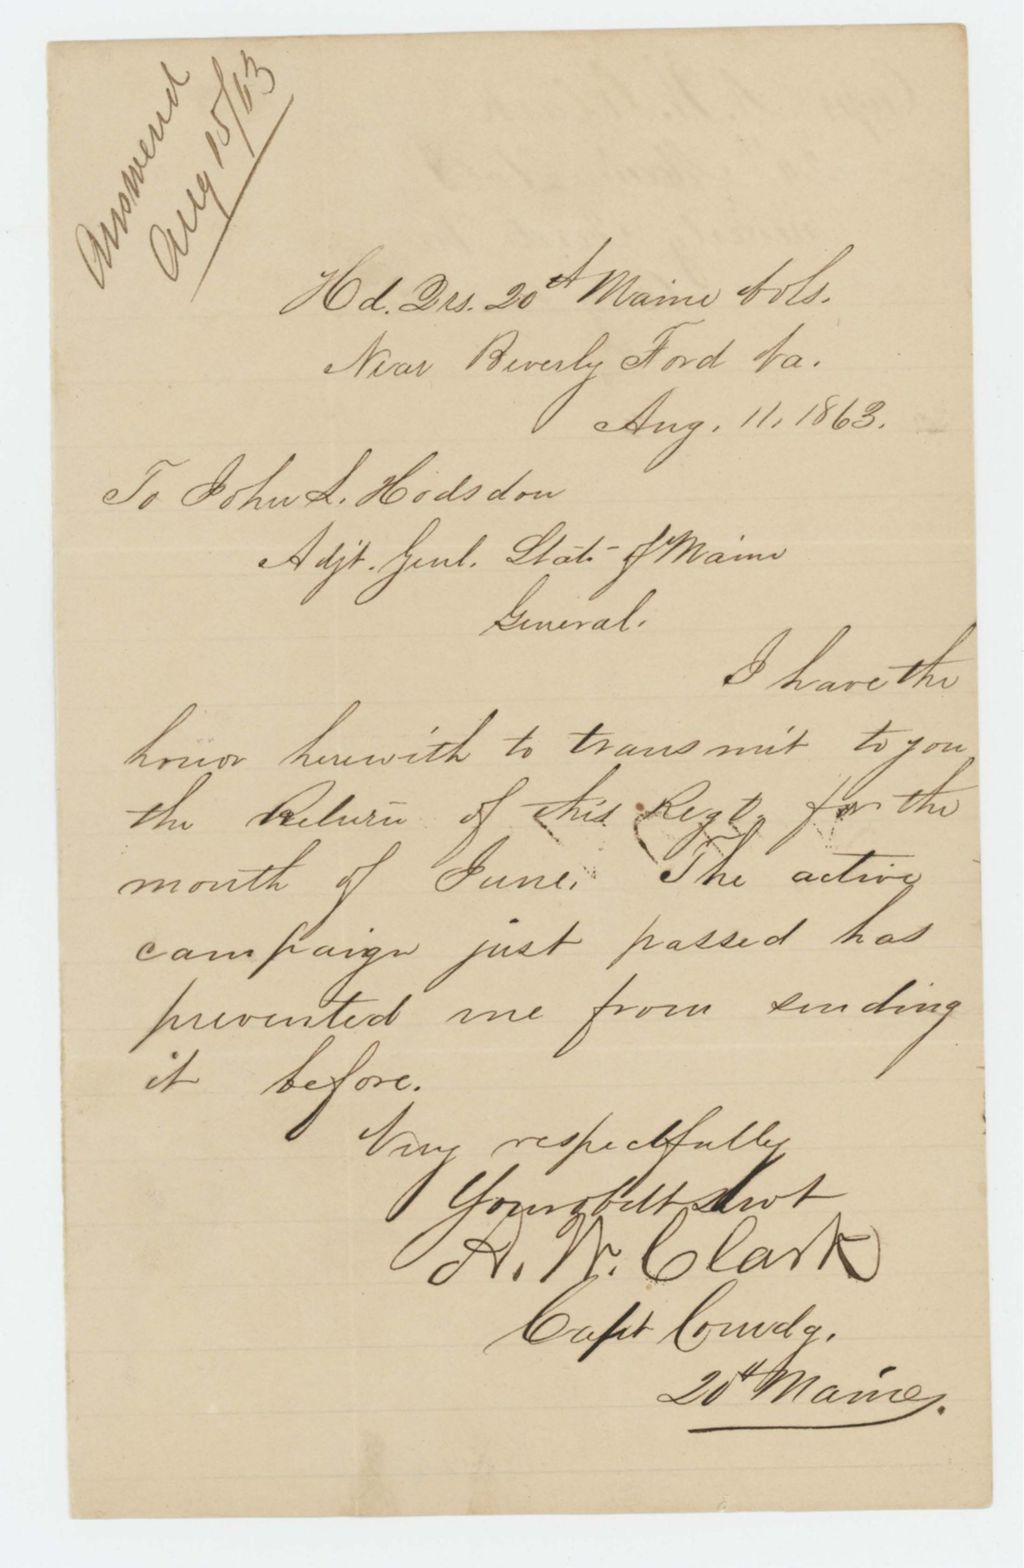 Answered
Aug 15/63
Hd. Qrs. 20th Maine Vols.
Near Beverly Ford Va.
Aug. 11, 1863.
To John L. Hodsdon
Adjt. Genl. State of Maine
General.
I have the
honor herewith to transmit to you
the Return of this Regt. for the
month of June. The active
campaign just passed has
prevented me from sending
it before.
Very respectfully
Your obdt Servt
A. W. Clark
Capt Comdg.
20th Maine.